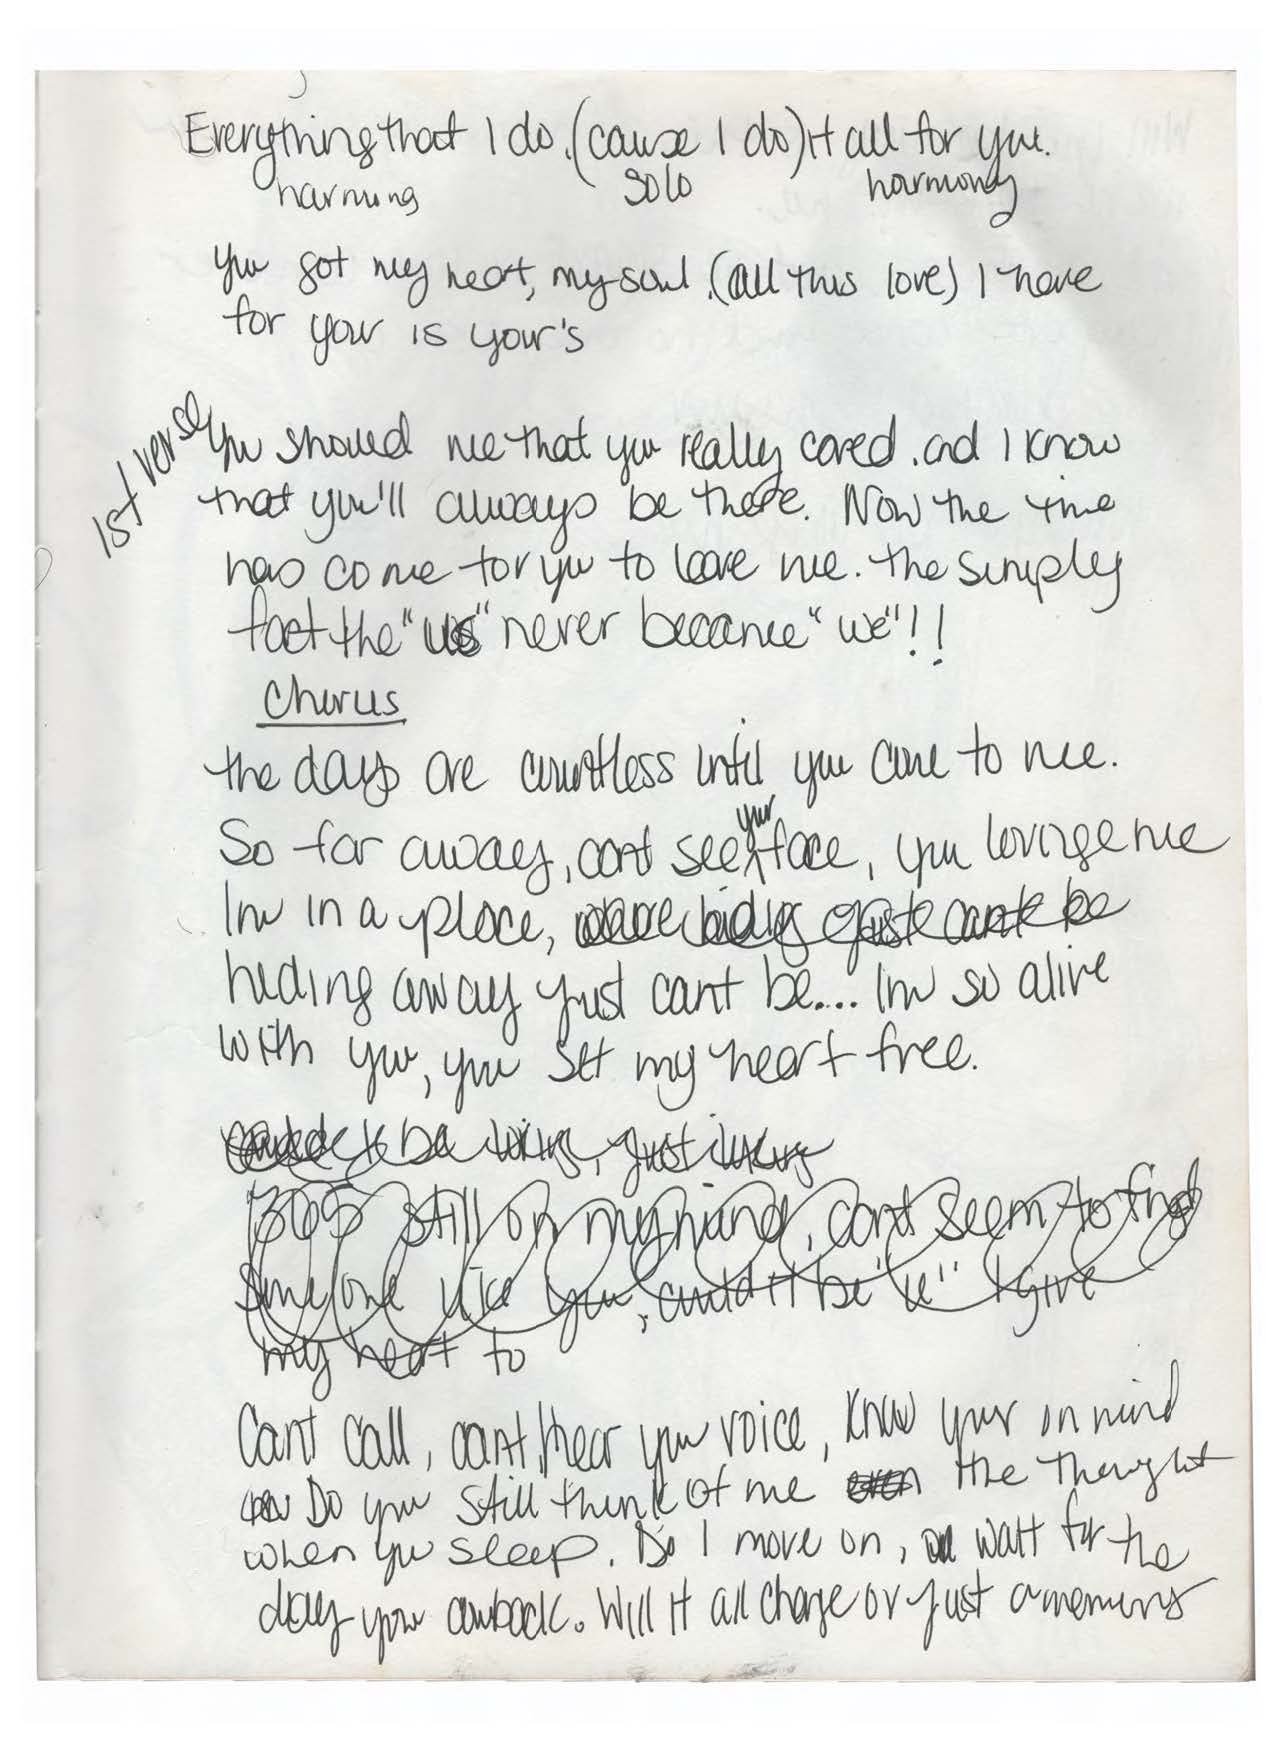 Everything that I do. (cause I do) it all for you.
harmony solo harmony
you got my heart, my soul. (all this love) I have
for your is your's
1st verse
You showed me that you really cared. and I know
that you'll always be there. Now the time
has come for you to leave me. the simply
fact the "us" never became "we"!!
Chorus
the days are countless until you came to me.
So far away, cant see your face, you loving me
Im in a place, where hiding just cant be
hiding away just cant be.... Im so alive
with you, you set my heart free.
to be just
365 still on my mind, cant seem to find
Someone like you, could it be "u" I give
my heart to
Cant call, cant hear your voice, know your on mind
Do you still think of me even the thought
when you sleep. Do I move on, or wait for the
day your comback. Will it all change or just a memory